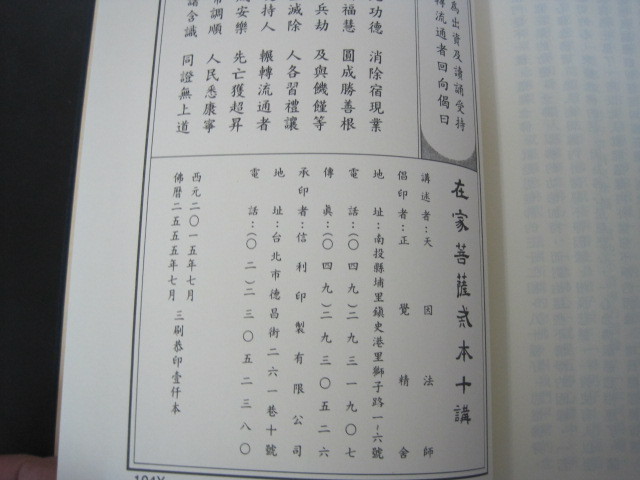 為出資及讀誦受持
轉流通者回向偈曰
功德 消除宿現業
福慧 圓成勝善根
兵劫 及與饑饉等
減除 人各習禮讓
持人 輾轉流通者
安樂 先亡獲超昇
調順 人民悉康寧
諸含識 同證無上道
在家菩薩戒本十講
講述者：天因法師
倡印者：正覺精舍
地址：南投縣埔里鎮史港里獅子路一~六號
電話：(○四九)二九三一九○七
傳真：(○四九)二九三○五二六
承印者：信利印製有限公司
地址：台北市德昌街二六一巷十號
電話：(○二)二三○五二三八○
西元二○一五年七月
佛曆二五五五年七月 三刷恭印壹仟本